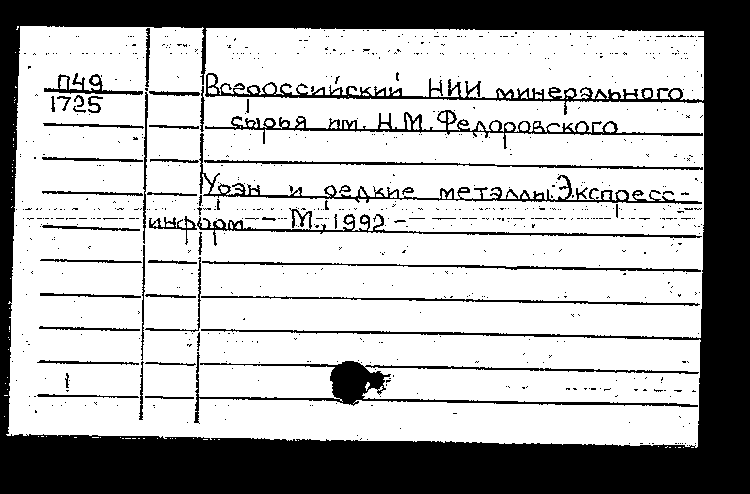 П49
1725
Всероссийский НИИ минерального
сырья им. Н.М.Федоровского
Уран и редкие металлы:Экспресс-
информ. – М.,1992 –
1